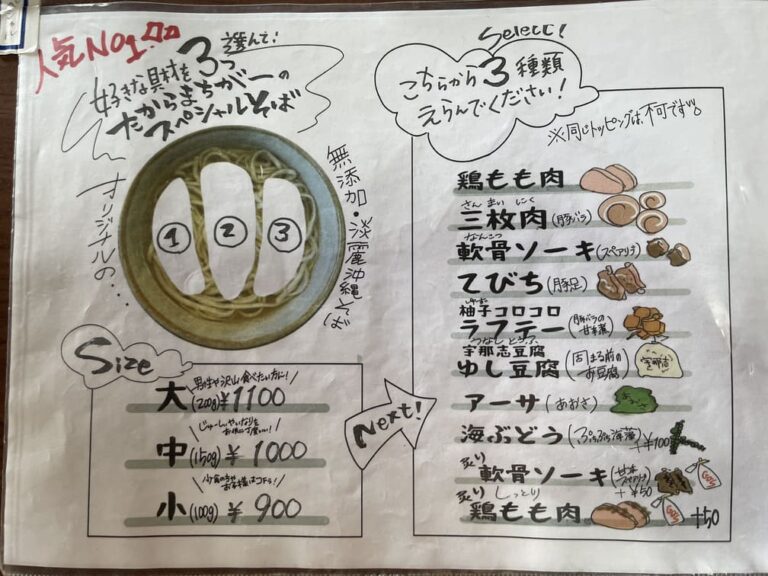 人気No1
選んで!
好きな具材を3つ
たからまちがーの
スペシャルそば
オリジナルの...
無添加・淡麗沖縄そば
1 2 3
Size
男性や沢山食べたい方に!
大(200g)¥1100
中(150g)¥1000
小(100g)¥900
Next!
Select!
こちらから3種類
えらんでください!
※同じトッピングは、不可です。
鶏もも肉
さんまいにく
三枚肉(豚バラ)
なんこつ
軟骨ソーキ(スペアリブ)
てびち(豚足)
柚子コロコロ
ラフテー(豚バラの甘辛煮)
宇那志豆腐
ゆし豆腐(固まる前のお豆腐)
アーサ(あおさ)
海ぶどう(ぷちぷち海藻)+¥100
炙り
軟骨ソーキ(甘辛スペアリブ)+¥50
炙り しっとり
鶏もも肉 +50